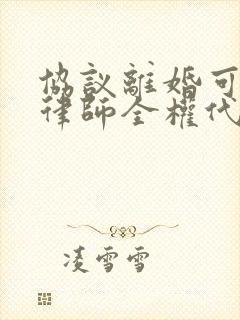 協議離婚可
律師全權代
凌雪雪